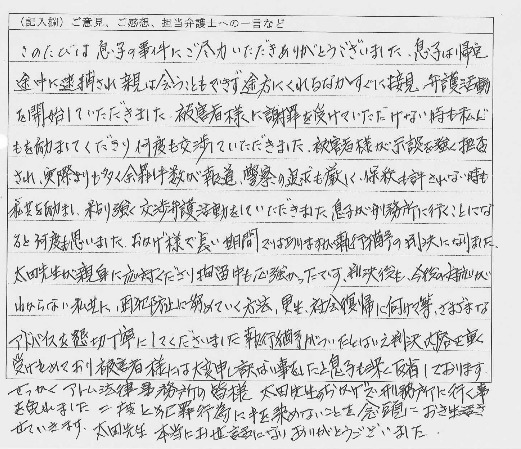 (記入欄) ご意見、ご感想、担当弁護士への一言など
このたびは息子の事件にご尽力いただきありがとうございました。息子は帰宅
途中に逮捕され親は会うこともできず途方にくれるなかすぐに接見、弁護活動
を開始していただきました。被害者様に謝罪を受けていただけない時も私ど
もを励ましてくださり何度も交渉していただきました。被害者様が示談を強く拒否
され、実際よりも多く余罪件数が報道、警察の追求も厳しく、保釈も許されない時も
私共を励まし、粘り強く交渉弁護活動をしていただきました。息子が刑務所に行くことにな
ると何度も思いました。おかげ様で長い期間ではありますが執行猶予の判決になりました。
太田先生が親身に応対くださり拘留中も心強かったです。判決後も、今後の
わからない私共に、再犯防止に努めていく方法、更生、社会復帰に向けて等、さまざまな
アドバイスを懇切丁寧にしてくださいました。執行猶予がついたとはいえ判決内容を重く
受けとめており被害者様には大変申し訳ない事をしたと息子も深く反省しております
せっかくアトム法律事務所の皆様 太田先生のおかげで刑務所に行く事
を免れました 二度と犯罪行為に手を染めないことを念頭におき生活さ
せていきます。太田先生 本当にお世話になりありがとうございました。